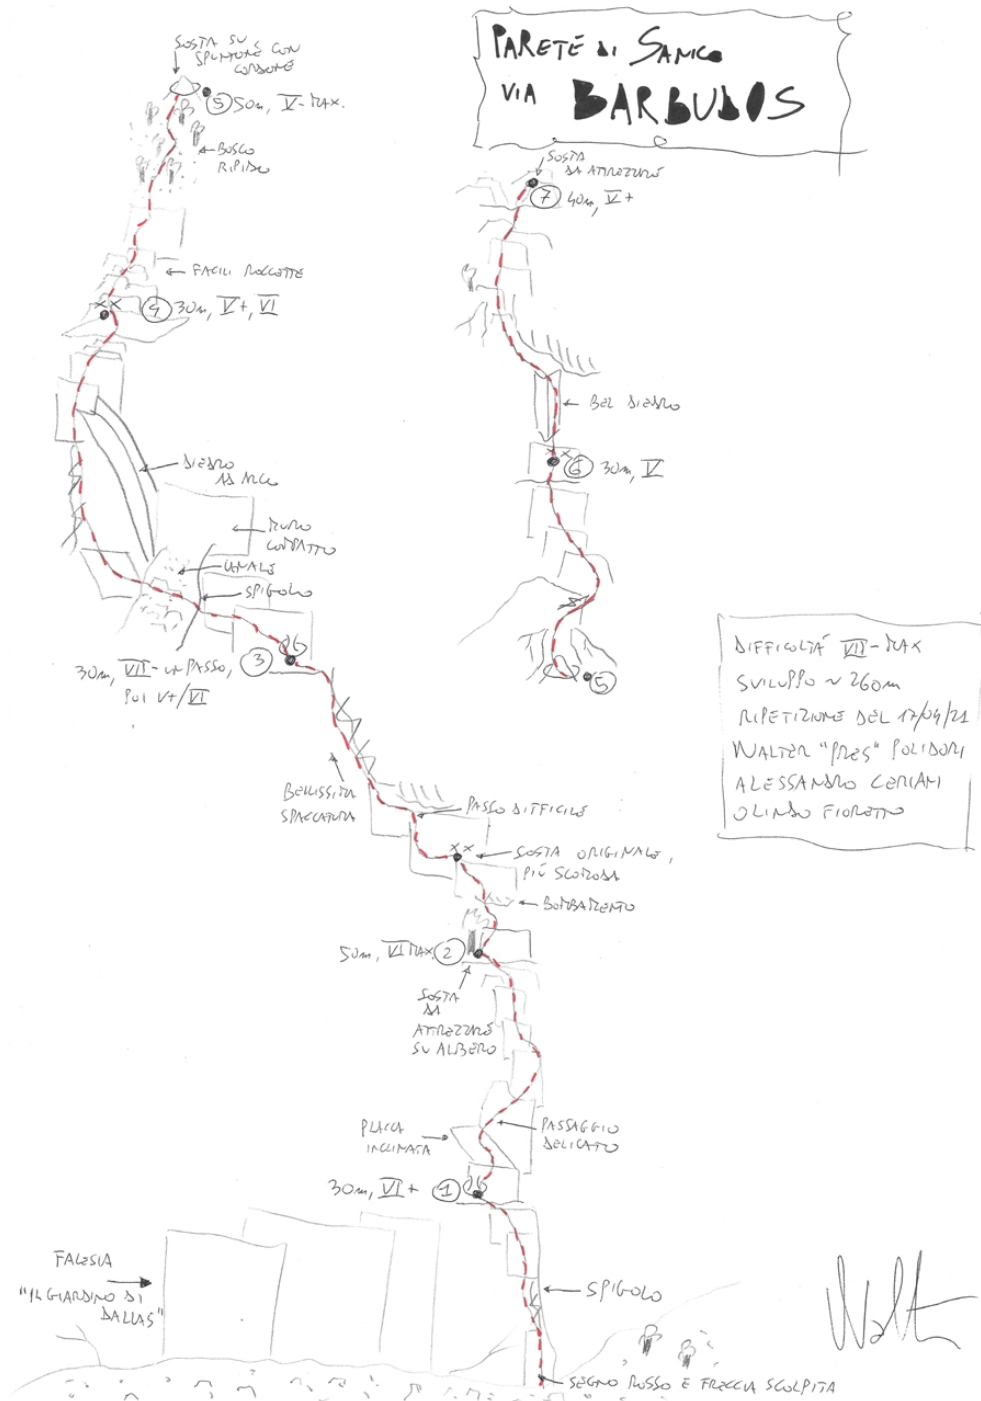 PARETE DI SANICO
VIA BARBUDOS
SOSTA SU
SPUNTONE CON
CORDONE
5 50m, V- MAX.
BOSCO
RIPIDO
FACILI ROCCETTE
4 30m, V+, VI
DIEDRO
AD ARCO
MURO
COMPATTO
CANALE
SPIGOLO
3
30m, VII- UN PASSO,
POI V+/VI
BELLISSIMA
SPACCATURA
PASSO DIFFICILE
SOSTA ORIGINALE,
PIÙ SCOMODA
BOMBAMENTO
50m, VI MAX 2
SOSTA
DA
ATTREZZARE
SU ALBERO
PLACCA
INCLINATA
PASSAGGIO
DELICATO
30m, VI+ 1
FALESIA
"IL GIARDINO DI
DALLAS"
SPIGOLO
SEGNO ROSSO E FRECCIA SCOLPITA
SOSTA
DA ATTREZZARE
7 40m, V+
BEL DIEDRO
6 30m, V
5
DIFFICOLTÁ VII- MAX
SVILUPPO ~ 260m
RIPETIZIONE DEL 17/04/21
WALTER "PRES" POLIDORI
ALESSANDRO CERIANI
OLINDO FIORETTO
Walt